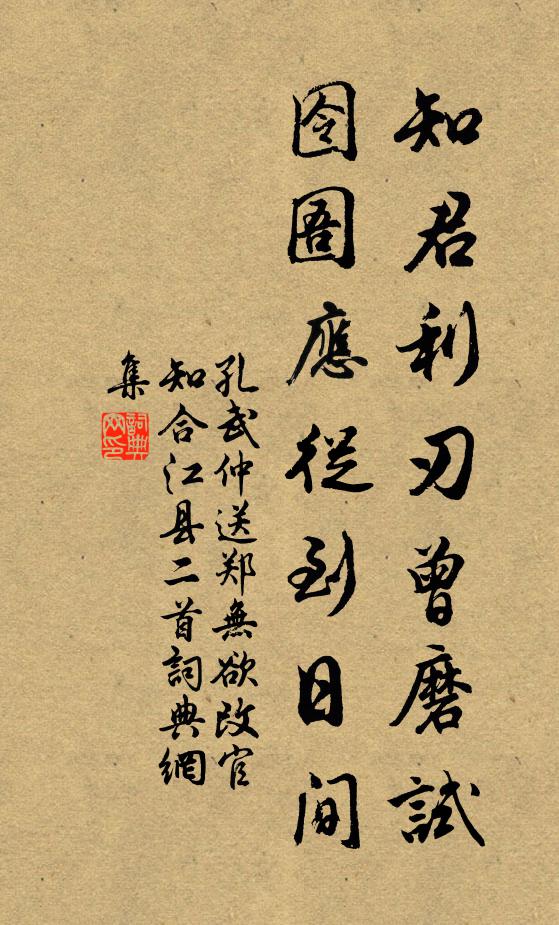 知君利刃曾磨試
囹圄應從到日閒
孔武仲送郑無欲改官
知合江县二首詞典網
集
詞典網印